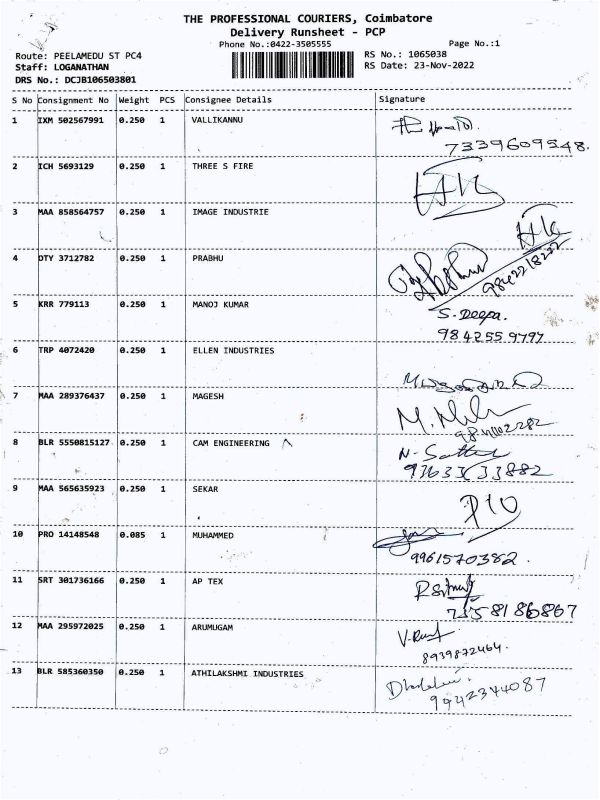 THE PROFESSIONAL COURIERS, Coimbatore
Delivery Runsheet - PCP
Phone No.:0422-3505555 Page No.:1
Route: PEELAMEDU ST PC4 RS No.: 1065038
Staff: LOGANATHAN RS Date: 23-Nov-2022
DRS No.: DCJB106503801
S No Consignment No Weight PCS Consignee Details Signature
1 IXM 502567991 0.250 1 VALLIKANNU
7339609548.
2 ICH 5693129 0.250 1 THREE S FIRE
3 MAA 858564757 0.250 1 IMAGE INDUSTRIE
4 DTY 3712782 0.250 1 PRABHU
9842218222
5 KRR 779113 0.250 1 MANOJ KUMAR S. Deepa.
984255 9797
6 TRP 4072420 0.250 1 ELLEN INDUSTRIES
7 MAA 289376437 0.250 1 MAGESH
8 BLR 5550815127 0.250 1 CAM ENGINEERING
9 MAA 565635923 0.250 1 SEKAR
10 PRO 14148548 0.085 1 MUHAMMED
9961570382.
11 SRT 301736166 0.250 1 AP TEX
12 MAA 295972025 0.250 1 ARUMUGAM
8939872464.
13 BLR 585360350 0.250 1 ATHILAKSHMI INDUSTRIES
9942344087